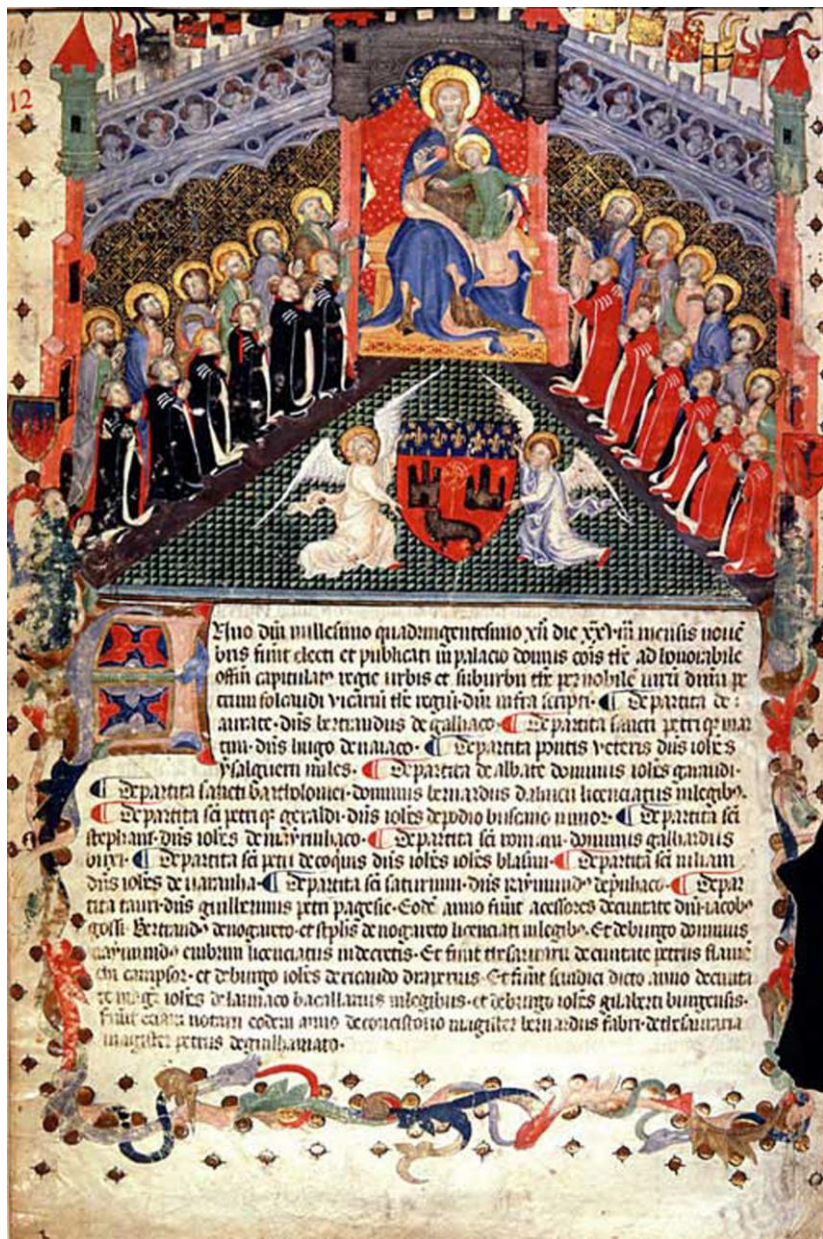 412
12
Anno dñi millesimo quadringentesimo xii die xxviii mensis nouē
bris fuūt electi et publicati in palacio domus cõis thē ad honorabile
offm̄ capitulatꝰ regie urbis et suburbii thē per nobile uirū dñm pe
trum folcaudi vicariū thē regiū dñi infra scripti · ¶ De partita de
aurate · dñs bertrandus de galhaco · ¶ De partita sancti petri qᷓ mar
tini · dñs hugo de · ¶ De partita pontis veteris dñs iohēs
ysalguerii miles · ¶ De partita de albate dominus iohēs garaudi ·
¶ De partita sancti bartholomei · dominus bernardus licenciatus in legibꝰ ·
¶ De partita sci petri qᷓ geraldi · dñs iohēs de podio buscano minor · ¶ De partita sci
stephani · dñs iohēs de · ¶ De partita sci romani · dominus galhardus
· ¶ De partita sci petri de coquis dñs iohēs iohēs blasini · ¶ De partita sci
dñs iohēs de varanha · ¶ De partita sci saturnini · dñs raymundꝰ de · ¶ De par
tita tauri · dñs guillermus petri pagesie · Eodē anno fuūt acessores de ciuitate dñi iacobꝰ
gossi · Bertrandꝰ de nogareto · et de nogareto licenciati in legibꝰ · Et de burgo dominus
raymundꝰ licenciatus in decretis · Et fuūt thesaurarii de ciuitate petrus
campsor · et de burgo iohēs de ricaudo draperius · Et fuūt scindici dicto anno de ciuita
te iohēs de bacallarius in legibus · et de burgo iohēs gilaberti burgensis ·
fuūt eciam notarii eodem anno de concistorio magister bernardus fabri · de thesauraria
magister petrus de